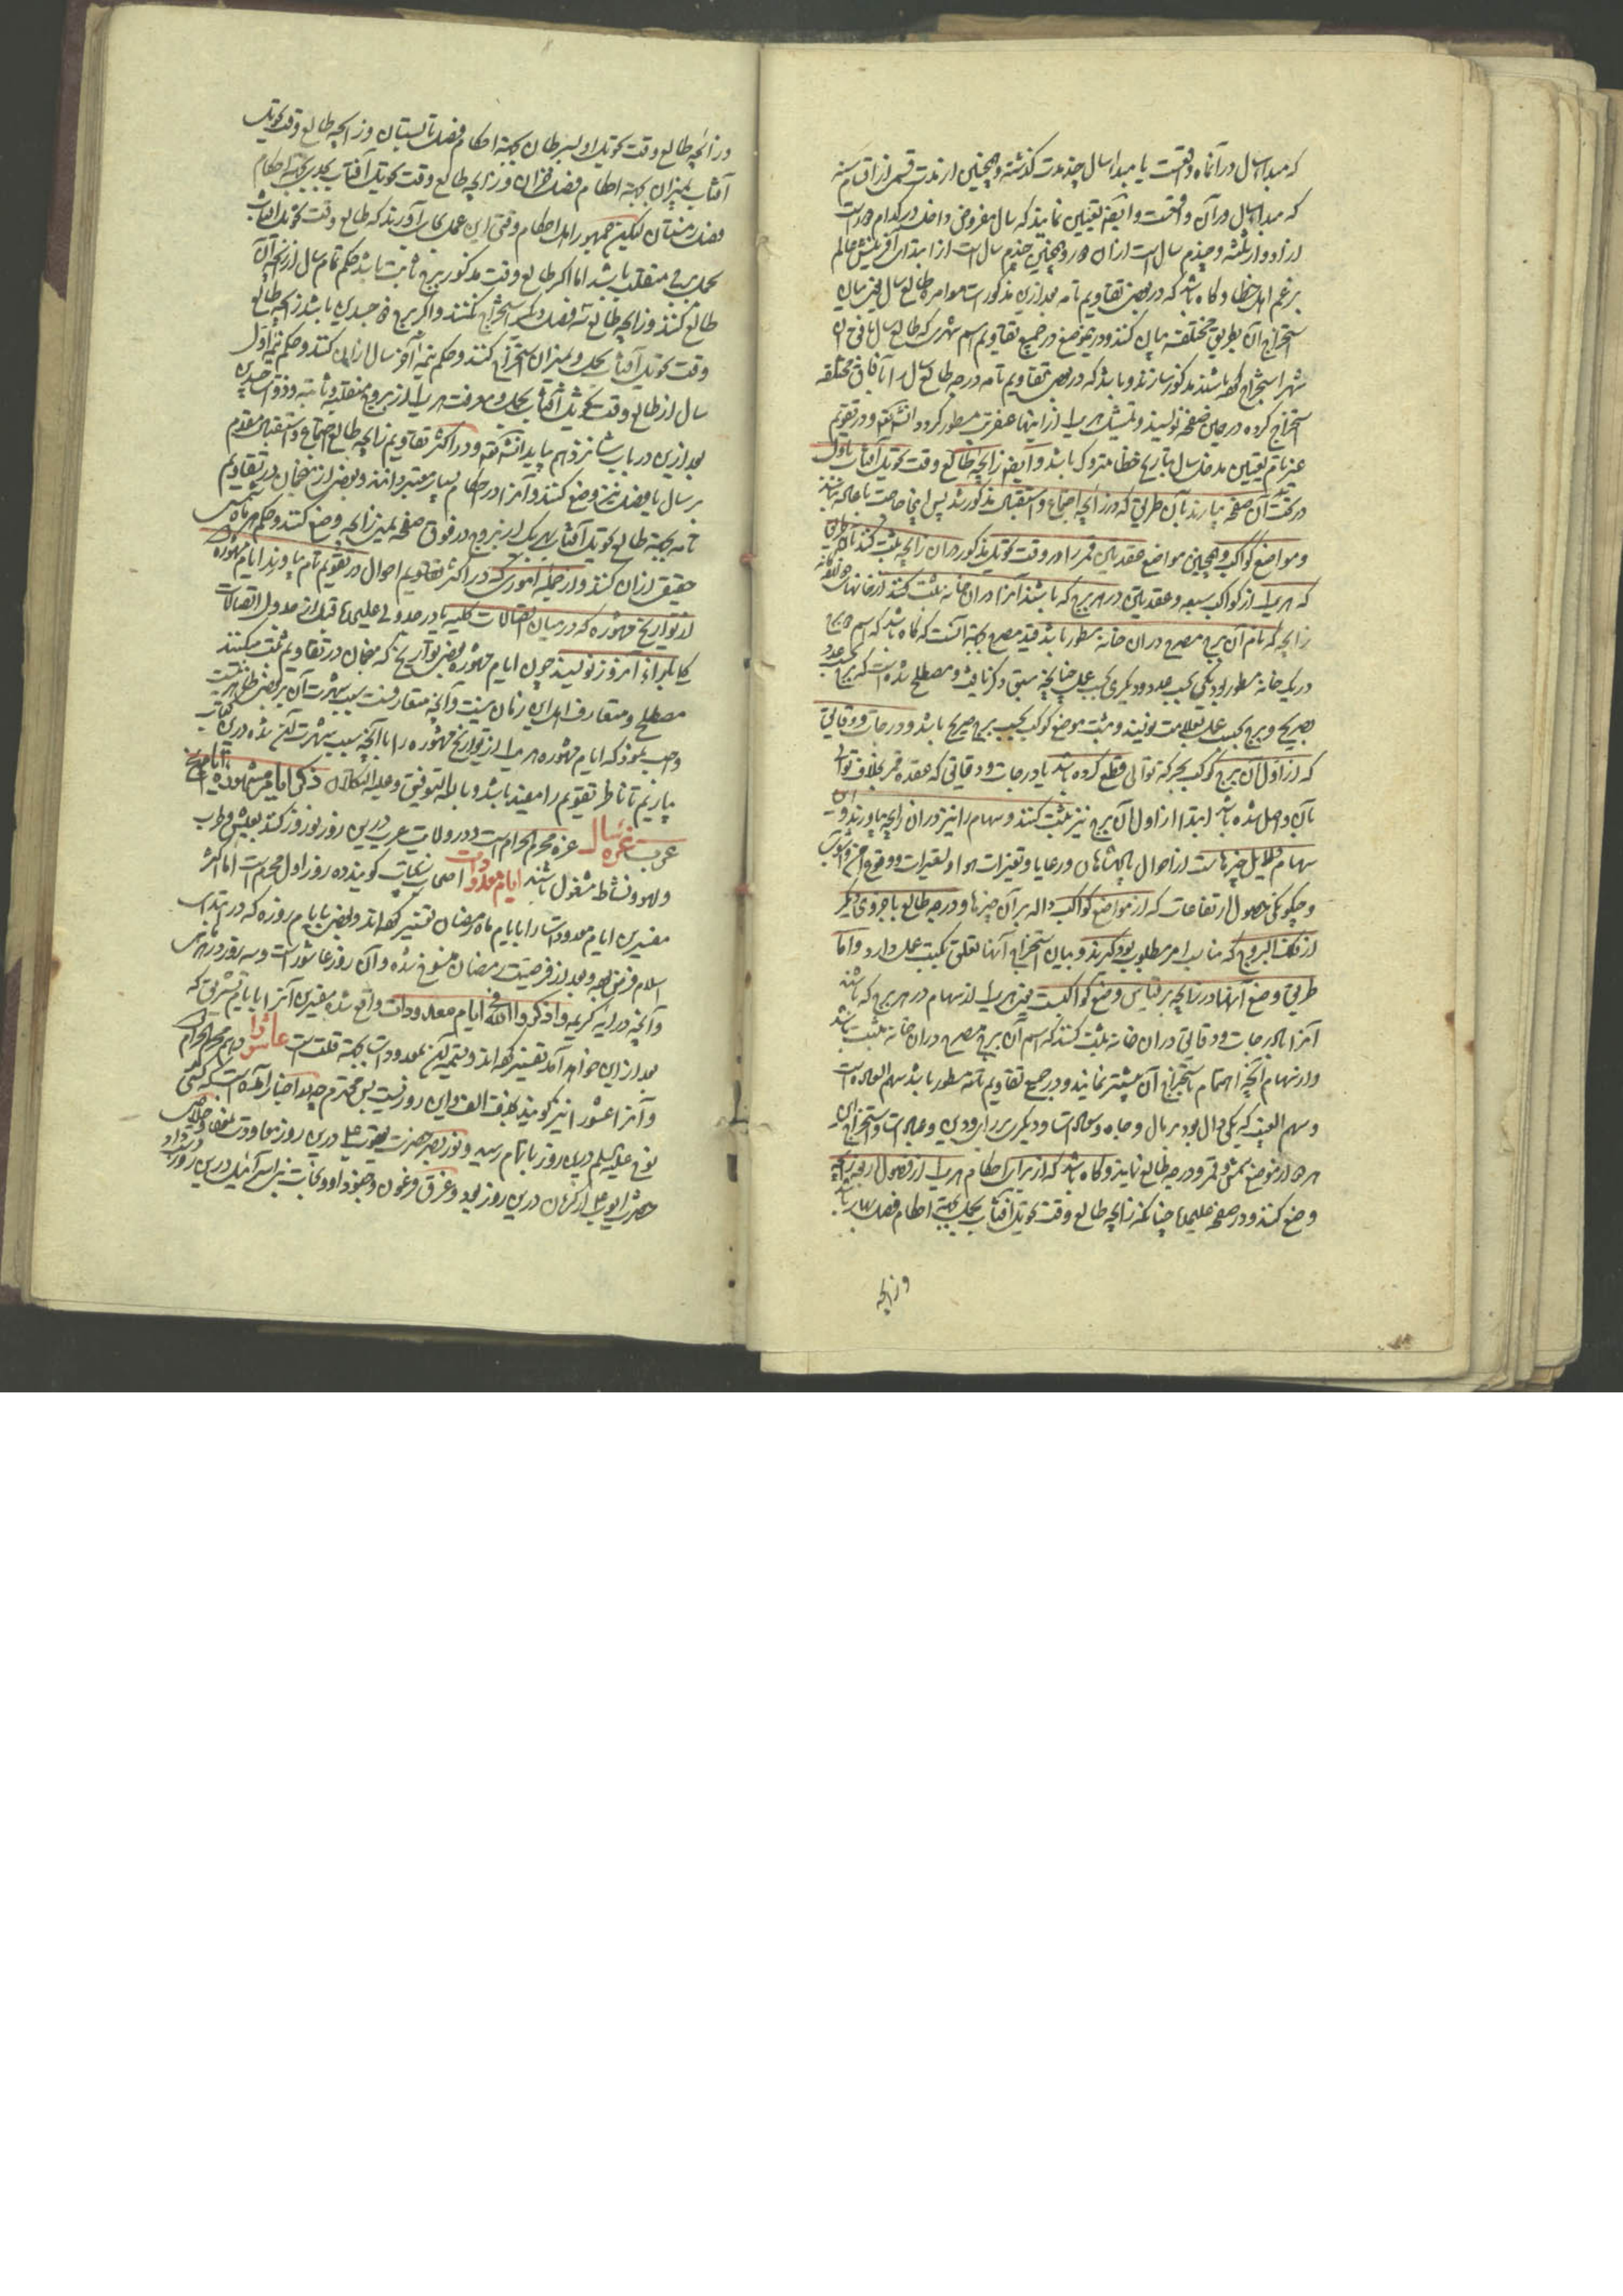 که مبدا سال در آنماه واقعست یا مبدا سال چند مدت گذشته و همچنین از مدت قسمی از اقسام سنه
که مبدا سال در آن واقعست و ایضا تعیین نمایند که سال مفروض داخل در کدام دور است
از ادوار ثلثه و چندم سال است از آن دور و همچنین چندم سال است از ابتدای آفرینش عالم
بزعم اهل خطا و گاه باشد که در بعضی تقاویم تامه بعد ازین مذکورات موامره طالع سال یعنی بیان
استخراج آن بطریق مختلفه بیان کنند و درینموضع در جمیع تقاویم اسم شهری که طالع سال بافق آن
شهر استخراج کرده باشند مذکور سازند و باشد که در بعضی تقاویم تامه درجه طالع سال را بآفاق مختلفه
استخراج کرده در همین صفحه نویسند و تمثیل هر یک از اینها عنقریب مسطور گردد انشاء الله تعالی و در تقویم
غیر تام تعیین مدخل سال بتاریخ خطا متروک باشد و ایضا زایچه طالع وقت تحویل آفتاب باول
در تحت آن صفحه بیارند بآن طریق که در زایچه اجتماع و استقبال مذکور شد پس اینجا حاجت باعاده نباشد
و مواضع کواکب و همچنین مواضع عقدتین قمر را در وقت تحویل مذکور در آن زایچه ثبت کنند باین طریق
که هر یک از کواکب سبعه و عقدتین در هر برج که باشند آنرا در آن خانه ثبت کنند از خانهای
زایچه که نام آن برج مصرح در آن خانه مسطور باشد قید مصرح بجهة آنست که گاه باشد که اسم دو برج
در یک خانه مسطور بود یکی بحسب عدد و دیگری بحسب عمل چنانچه سبق ذکر یافت و مصطلح شده است که برج بحسب عدد
بصریح و برج بحسب عمل بعلامت نویسند و مثبت موضع کوکب بحسب برج صریح باشد و درجات و دقایق
که از اول آن برج کوکب بحرکة توالی قطع کرده باشد یا درجات و دقایقی که عقده قمر بخلاف توالی
بآن واصل شده باشد ابتدا از اول آن برج نیز ثبت کنند و سهام را نیز در آن زایچه بیاورند و این
سهام دلایل چیزهاست از احوال پادشاهان و رعایا و تغیرات هوا و تغیرات و وقوع
و چگونگی حصول ارتفاعات که از مواضع کواکب داله بر آن چیزها و درجه طالع یا جزوی دیگر
از فلک البروج که مناسب امر مطلوب بود گیرند و بیان استخراج آنها تعلق بکتب عمل دارد و اما
طریق وضع آنها در زایچه بر قیاس وضع کواکبست یعنی هر یک از سهام در هر برج که باشند
آنرا با درجات و دقایق در آن خانه ثبت کنند که اسم آن برج مصرح در آن خانه مثبت باشد
و از سهام آنچه اهتمام باستخراج آن بیشتر نمایند و در جمیع تقاویم تامه مسطور باشد سهم السعاده است
و سهم الغیب که یکی دال بود بر مال و جاه و سعادت و دیگری بر راز و دین و عبادت و استخراج این
هر دو از موضع شمس و قمر و درجه طالع نمایند و گاه باشد که از برای احکام هر یک از فصول اربعه زایچه
وضع کنند و در صفحه علیحده چنانکه زایچه طالع وقت تحویل آفتاب بحمل بجهة احکام فصل بهار باشد
و زایچه
و زایچه طالع وقت تحویل او بسرطان بجهة احکام فصل تابستان و زایچه طالع وقت تحویل
آفتاب بمیزان بجهة احکام فصل خزان و زایچه طالع وقت تحویل آفتاب بجدی بجهة احکام
فصل زمستان لیکن جمهور اهل احکام وقتی این عمل بجای آورند که طالع وقت تحویل آفتاب
بحمل برجی منقلب باشد اما اگر طالع وقت مذکور برج ثابت باشد حکم تمام سال از زایچه آن
طالع کنند و زایچه طالع سه فصل دیگر استخراج نکنند و اگر برج ذو جسدین باشد زایچه طالع
وقت تحویل آفتاب بحمل و بمیزان استخراج کنند و حکم نیمه آخر سال از این کنند و حکم نیمه اول
سال از طالع وقت تحویل آفتاب بحمل و معرفت هر یک از بروج منقلبه و ثابته و ذو جسدین
بعد ازین در باب شانزدهم بیاید انشاء الله تعالی و در اکثر تقاویم زایچه طالع اجتماع و استقبال مقدم
بر سال یا فصل نیز وضع کنند و آنرا در احکام بسیار معتبر دانند و بعضی از منجمان در تقاویم
تامه بجهة طالع تحویل آفتاب بهر یک از بروج در فوق صفحه یمین زایچه وضع کنند و حکم هر ماه شمسی
حقیقی از آن کنند و از جمله اموری که در اکثر تقاویم احوال در تقویم تام بیاورند ایام مشهوره
از تواریخ مشهوره که در میان اتصالات کلیه یا در جدولی علیحده قبل از جدول اتصالات
کلیه بازاء آنروز نویسند چون ایام مشهوره بعضی تواریخ که منجمان در تقاویم ثبت میکنند
مصطلح و متعارف اهل این زمان نیست و آنچه متعارفست سبب شهرت آن بر بعضی ظاهر نیست
واجب نمود که ایام مشهوره هر یک از تواریخ مشهوره را با آنچه سبب شهرت آن شده درین کتاب
بیاریم تا ناظر تقویم را مفید باشد و بالله التوفیق و علیه التکلان ذکر ایام مشهوره تاریخ
عرب غره سال غره محرم الحرام است و در ولایت عرب درین روز نوروز کنند بعیش و طرب
و لهو و نشاط مشغول باشند ایام معدودات اصحاب زیجات گویند ده روز اول محرم است اما اکثر
مفسرین ایام معدودات را بایام ماه رمضان تفسیر کرده اند و بعضی بایام روزه که در ابتدای
اسلام فرض بوده و بعد از فرضیت رمضان منسوخ شده و آن روز عاشوراست و سه روز در هر ماهی
و آنچه در آیه کریمه واذکروا الله فی ایام معدودات واقع شده مفسرین آنرا بایام تشریق که
بعد ازین خواهد آمد تفسیر کرده اند و تسمیه آن بمعدودات بجهة قلت است عاشورا دهم محرم الحرام
و آنرا عشورا نیز گویند بحذف الف و این روزیست بس محترم چه در اخبار آمده است که کشتی
نوح علیه السلم درین روز بانجام رسید و نور بصر حضرت یعقوب علی درین روز معاودت نمود و خلاصی
حضرت ایوب علی از کرمان درین روز بود و غرق فرعون و جنود او و نجات بنی اسرائیل درین روز